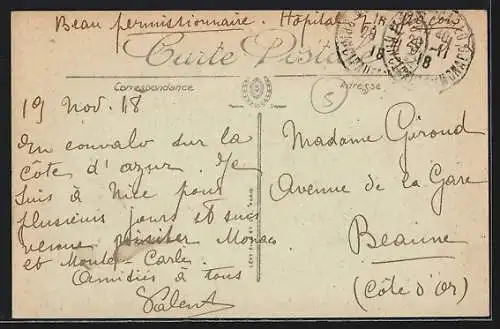 Beau permissionnaire. Hôpital
Carte Postale
Correspondance
Adresse
5
19 Nov. 18
En convalo sur la
côte d'azur. Je
suis à Nice pour
plusieurs jours et suis
venu visiter Monaco
et Monte-Carlo.
Amitiés à tous
Madame Giroud
Avenue de la Gare
Beaune
(Côte d'Or)